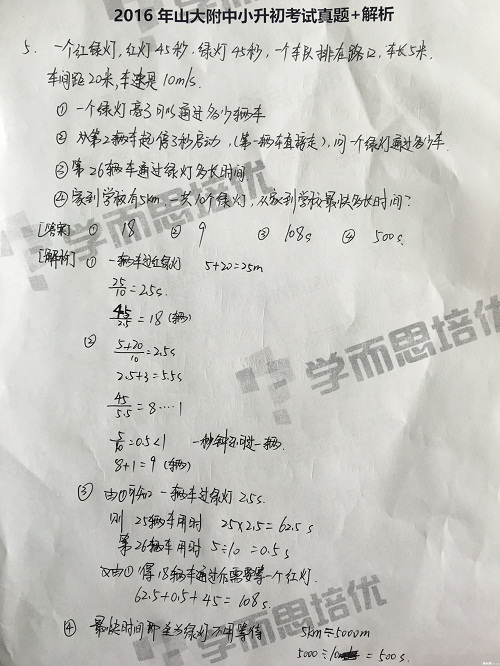 2016年山大附中小升初考试真题+解析
5. 一个红绿灯,红灯45秒.绿灯45秒,一个车队排在路口,车长5米,
车间距20米,车速是10m/s.
① 一个绿灯亮了可以通过多少辆车
② 从第2辆车起停了3秒启动,(第一辆车直接走),问一个绿灯通过多少车.
③ 第26辆车通过绿灯多长时间
④ 家到学校有5km,一共10个绿灯,从家到学校最快多长时间?
[答案] ① 18 ② 9 ③ 108s ④ 500s.
[解析] ① 一辆车过红绿灯 5+20=25m
25/10=2.5s.
45/2.5=18(辆)
② (5+20)/10=2.5s
2.5+3=5.5s
45/5.5=8····1
5/10=0.5<1 一秒钟还可过一辆.
8+1=9(辆)
③ 由①可知 一辆车过绿灯 2.5s.
则 25辆车用时 25×2.5=62.5s
第26辆车用时 5÷10=0.5s
又由①得18辆车通过后需要等一个红灯.
62.5+0.5+45=108s.
④ 最快时间即全为绿灯不用等待
5km=5000m
5000÷10=500s.
学而思培优
学而思培优
学而思培优